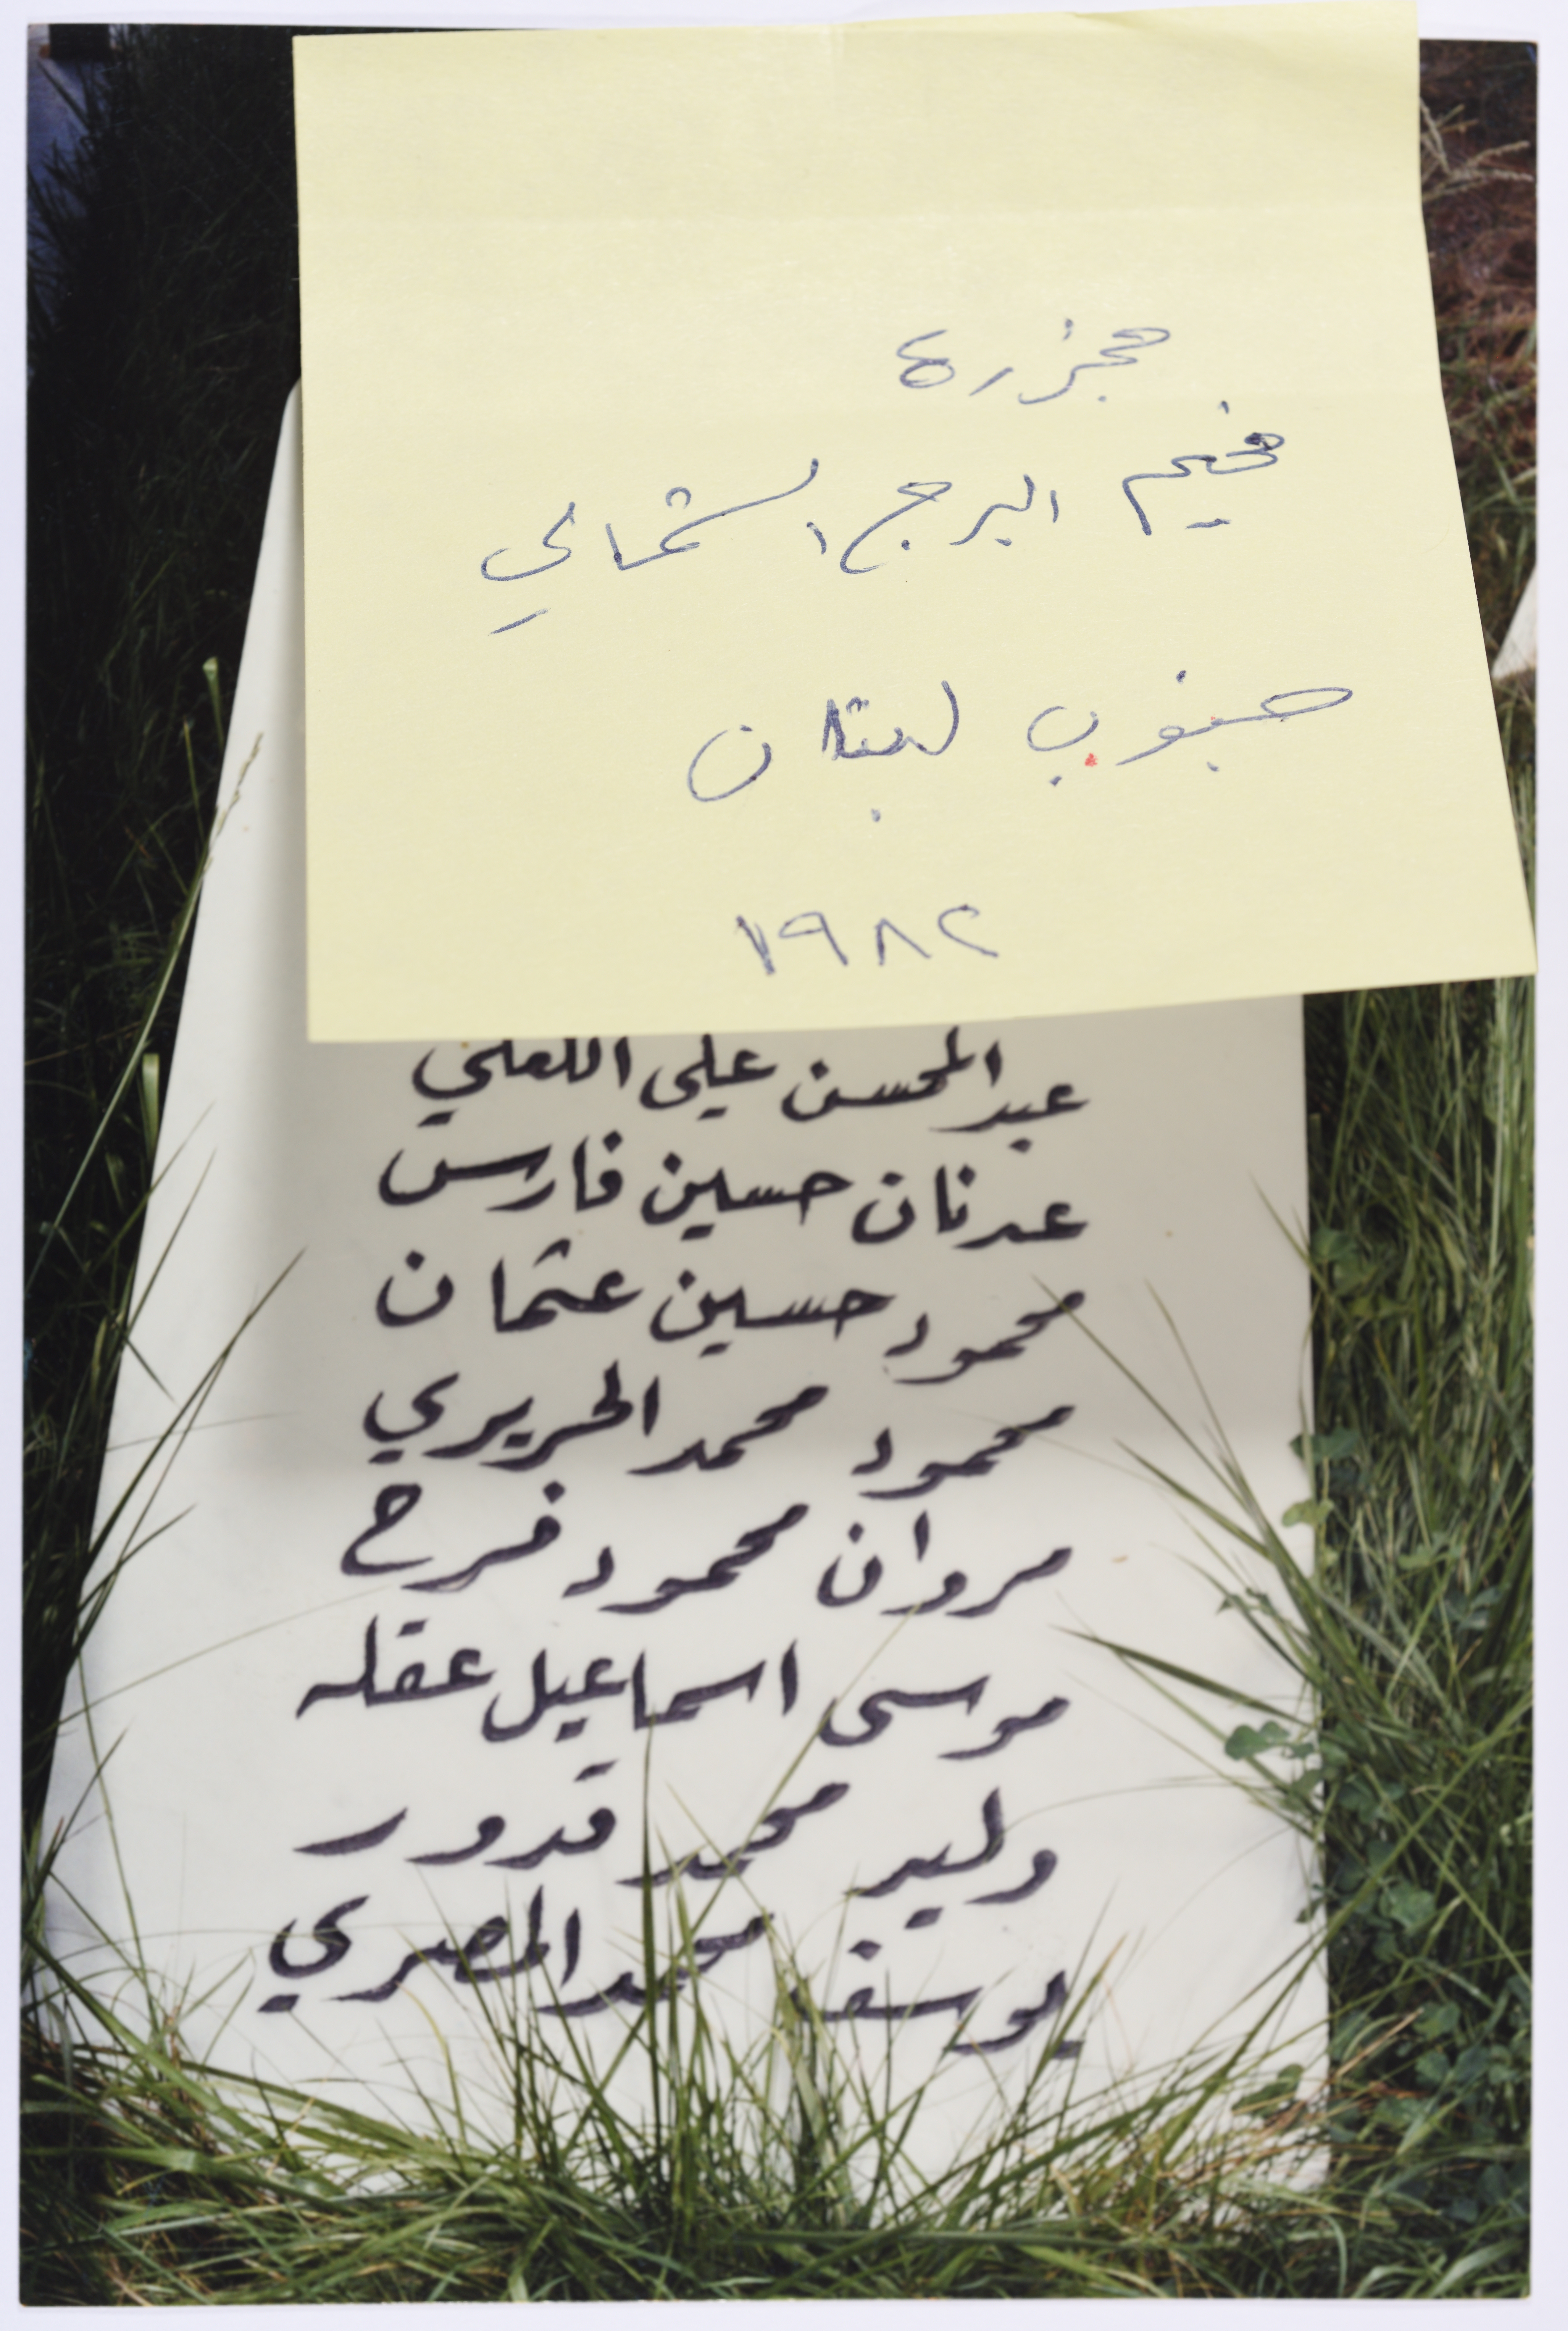 مجزرة
مخيم البرج الشمالي
جنوب لبنان
١٩٨٢
عبد المحسن علي
عدنان حسين فارس
محمود حسين عثمان
محمود محمد الحريري
مروان محمود فرح
موسى اسماعيل عقله
وليد محمد قدور
يوسف محمد المصري